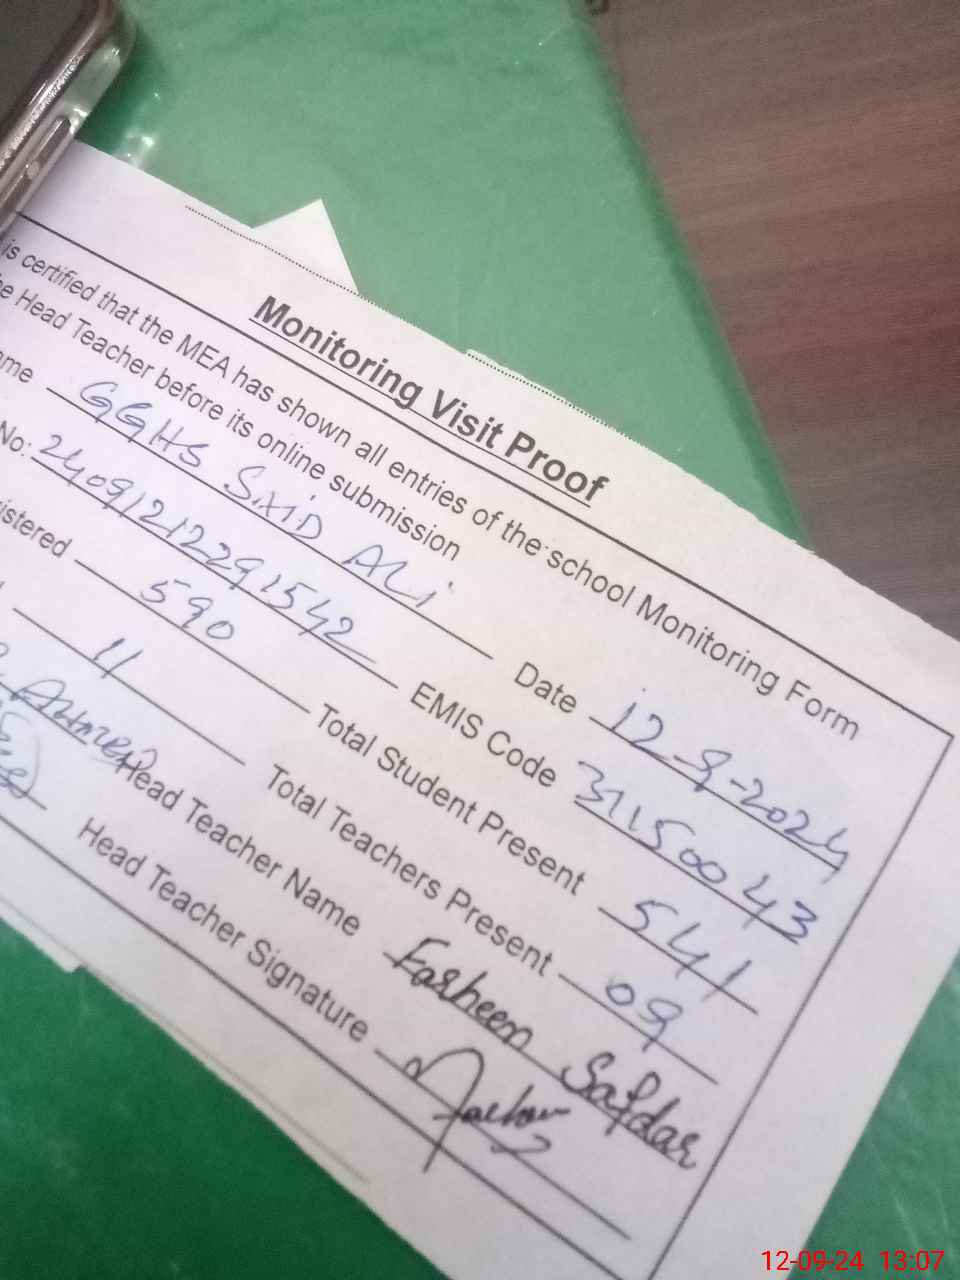 Monitoring Visit Proof
is certified that the MEA has shown all entries of the school Monitoring Form
Head Teacher before its online submission
GGHS SAID ALI Date 12-9-2024
No: 24091212291542 EMIS Code 31150043
istered 590 Total Student Present 541
11 Total Teachers Present 09
Head Teacher Name Farheen Safdar
Head Teacher Signature
12-09-24 13:07